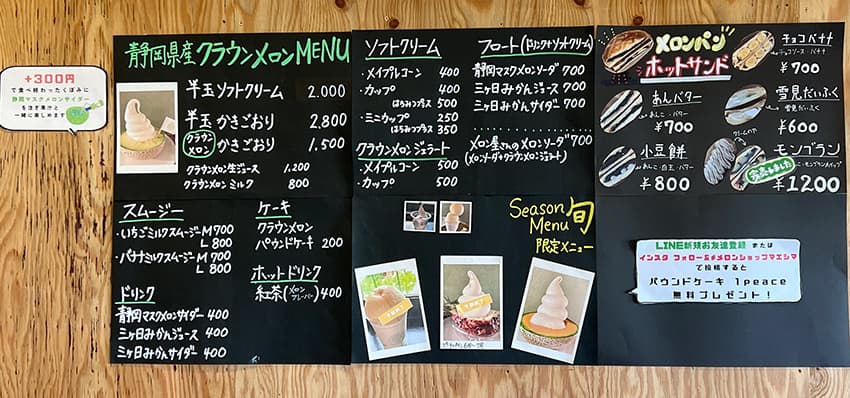 +300円
で食べ終わったくぼみに
静岡マスクメロンサイダー
を注ぎ果汁と
一緒に楽しめます
静岡県産クラウンメロンMENU
半玉ソフトクリーム 2,000
半玉かきごおり 2,800
クラウンメロン かきごおり 1,500
クラウンメロン生ジュース 1,200
クラウンメロンミルク 800
ソフトクリーム
・メイプルコーン 400
・カップ 400
はちみつプラス 500
・ミニカップ 250
はちみつプラス 350
クラウンメロンジェラート
・メイプルコーン 500
・カップ 500
フロート(ドリンク+ソフトクリーム)
静岡マスクメロンソーダ 700
三ヶ日みかんジュース 700
三ヶ日みかんサイダー 700
メロン屋さんのメロンソーダ 700
(メロンソーダ+クラウンメロンジェラート)
メロンパン
ホットサンド
チョコバナナ
チョコソース・バナナ
¥700
あんバター
あんこ・バター
¥700
雪見だいふく
雪見だいふく
¥600
小豆餅
あんこ・白玉・バター
¥800
モンブラン
完売しました
¥1200
スムージー
・いちごミルクスムージーM 700
L 800
・バナナミルクスムージーM 700
L 800
ドリンク
静岡マスクメロンサイダー 400
三ヶ日みかんジュース 400
三ヶ日みかんサイダー 400
ケーキ
クラウンメロン
パウンドケーキ 200
ホットドリンク
紅茶(メロンフレーバー) 400
Season 旬
Menu
限定メニュー
LINE新規お友達登録 または
インスタ フォロー&#メロンショップマエシマ
で投稿すると
パウンドケーキ 1peace
無料プレゼント!